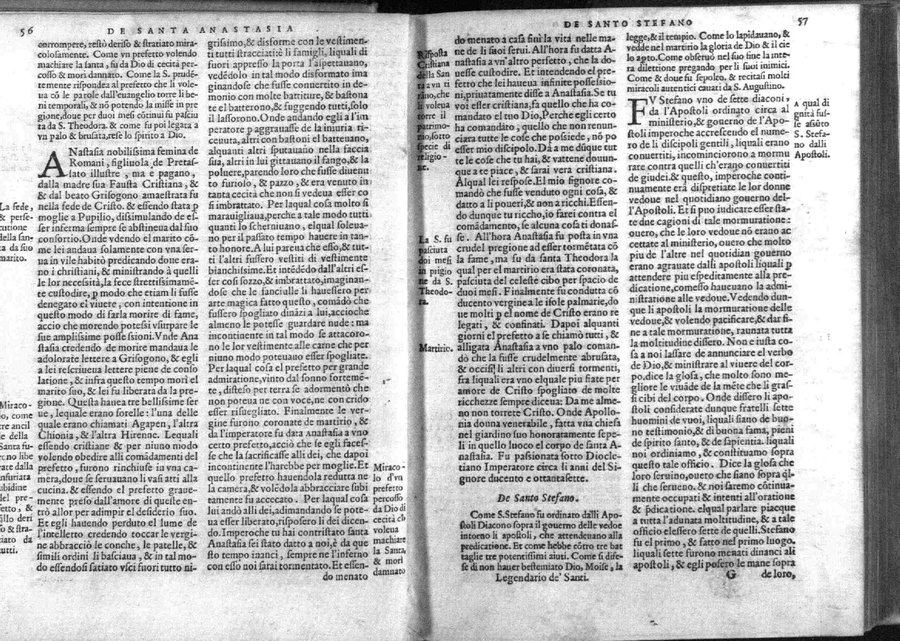 56
DE SANTA ANASTASIA
corrompere, restò deriso & stratiato mira-
colosamente. Come vn prefetto volendo
machiare la santa, fu da Dio di cecità per-
cosso & morì dannato. Come la S. prudẽ-
temente rispondea al prefetto che li vole-
ua cõ le parole dall'euangelio torre li be-
ni temporali, & nõ potendo la misse in pre
gione, doue per duoi mesi cõtinui fu pasciu
ta da S. Theodora. & come fu poi legata a
vn palo & brusata, rese lo spirito a Dio.
ANastasia nobilissima femina de
Romani, figliuola de Pretas-
sato illustre, ma e pagano,
dalla madre sua Fausta Cristiana, &
& dal beato Grisogono amaestrata fu
nella fede de Cristo. & essendo stata p
moglie a Pupilio, dissimulando de es-
ser inferma sempre se abstineua dal suo
consortio. Onde vdendo el marito cõ-
me lei andaua solamente con vna ser-
na in vile habitò predicando done eran-
no i christiani, & ministrando à quelli
de lor necessità, la fece strettissimamẽ-
te custodire, p modo che etiam li fusse
denegato el viuere, con intentione in
questo modo di farla morire di fame,
accio che morendo potessi vsurpare le
sue amplissime possessioni. Vnde Ana
stasia credendo de morire mandaua le
adolorate lettere a Grisogono, & egli
a lei rescriueua lettere piene de conso
latione, & infra questo tempo morì el
marito suo, & lei fu liberata da la pre-
gione. Questa hauea tre bellissime ser
ue, lequale erano sorelle: l'una delle
quale erano chiamati Agapen, l'altra
Chionia, & l'altra Hirenne. Lequali
essendo cristiane & per niuno modo
volendo obedire alli comãdamenti del
prefetto, furono rinchiuse in vna ca-
mera, doue se seruauano li vasi atti alla
cucina. & essendo el prefetto graue-
mente preso dall'amore di queste en-
trò allor per adimpir el desiderio suo.
Et egli hauendo perduto el lume de
l'intelletto credendo toccar le vergi-
ne abbracciò le conche, le patelle, &
simili ordini li basciaua, & in tal mo-
do essendosi satiato vscì fuori tutto ni-
La fede,
& perse-
cutione
della san-
ta da suo
marito.
Miraco-
lo, come
tre ancil
le della
Santa fu-
rno libe
rate dalla
infuriata
libidine
del pre-
fetto, &
esso deri
so & stra-
ciato da
tutti.
grissimo, & disforme con le vestimen-
ti tutti stracciati: i famigli, liquali di
fuori appresso la porta l'aspettauano,
vedẽdolo in tal modo disformato ima
ginandose che fusse conuertito in de-
monio con molte battiture, & bastona
te el batterono, & fuggendo tutti, solo
il lassorono. Onde andando egli a l'im
peratore p aggrauasse de la iniuria ri-
ceuuta, altri con bastoni el batteuano,
alquanti altri sputauano nella faccia
sua, altri in lui gittauano il fango, & la
poluere, parendo loro che fusse diuenu
to furiolo, & pazzo, & era venuto in
tanta cecità che non si vedeua esser co
si imbratato. Per laqual cosa molto si
marauigliaua, perche a tale modo tutti
quanti lo scherniuano, elqual soleua-
no per il passato tempo hauere in tan-
to honore. A lui parena che esso, & tut-
ti l'altri fussero vestiti di vestimente
bianchissime. Et intẽdẽdo dall'altri es-
ser cosi sozzo, & imbratato, imaginan-
dose che le fanciulle li hauessero per
arte magica fatto questo, comãdò che
fussero spogliato dinãzi a lui, accioche
almeno le potesse guardare nude: ma
incontinente in tal modo se attacoro-
no le lor vestimente alle carne che per
niuno modo potenano esser spogliate.
Per laqual cosa el prefetto per grande
admiratione, vinto dal sonno fortemẽ-
te, disteso per terra se adormentò che
non poteua ne con voce, ne con crido
esser risuegliato. Finalmente le ver-
gine furono coronate de martirio, &
da l'imperatore fu data Anastasia a vno
certo prefetto, acciò che se egli faces-
se che la sacrificasse alli dei, che dapoi
incontinente l'harebbe per moglie. Et
quello prefetto hauendola redutta ne
la camera, & volẽdola abbracciare subi
tamente fu accecato. Per laqual cosa
lui andò alli dei, adimandando se pote-
ua esser liberato, risposero li dei dicen-
do. Imperoche tu hai contristato santa
Anastasia sei stato dato a noi, & da que
sto tempo inanci, sempre ne l'inferno
con esso noi sarai tormentato. Et essen-
do menato
Miraco-
lo d'vn
prefetto
percosso
da Dio di
cecità ch
voleua
machiare
la Santa,
& morì
damnato
DE SANTO STEFANO
57
do menato a casa finì la vita nelle ma-
ne de li suoi serui. All'hora fu datta A-
nastasia a vn'altro perfetto, che la do-
uesse custodire. Et intendendo el pre-
fetto che lei haueua infinite possessio-
ni, priuatamente disse a Anastasia. Se tu
voi esser cristiana, fa quello che ha co-
mandato el tuo Dio, Perche egli certo
ha comandato, quello che non renun-
ciara tutte le cose che possiede, nõ po
esser mio discipolo. Dà a me dũque tut
te le cose che tu hai, & vattene douun-
que a te piace, & sarai vera cristiana.
Alqual lei respose. El mio signore co-
mandò che fusse venduto ogni cosa, &
datto a li poueri, & non a ricchi. Essen-
do dunque tu riccho, io farei contra el
comãdamento, se alcuna cosa ti donas-
se. All'hora Anastasia fu posta in vna
crudel pregione ad esser tormẽtata cõ
la fame, ma fu da santa Theodora la
qual per el martirio era stata coronata,
pasciuta del celeste cibo per spacio de
duoi mesi. Finalmente fu condutta cõ
ducento vergine a le isole palmarie, do
ue molti p el nome de Cristo erano re
legati, & confinati. Dapoi alquanti
giorni el prefetto a se chiamò tutti, &
alligata Anastasia a vno palo coman-
dò che la fusse crudelmente abrusata,
& occisi li altri con diuersi tormenti,
fra liquali era vno elquale piu fiate per
amore de Cristo spogliato de molte
ricchezze sempre diceua: Da me alme-
no non torrete Cristo. Onde Apollo-
nia donna venerabile, fatta vna chiesa
nel giardino suo honoratamente sepe-
lì in quello luoco el corpo de santa A-
nastasia. Fu passionata sotto Diocle-
tiano Imperatore circa li anni del Si-
gnore ducento e ottantasette.
De Santo Stefano.
Come S. Stefano fu ordinato dalli Apo-
stoli Diacono sopra il gouerno delle vedoe
intorno li apostoli, che attendenano alla
predicatione. Et come hebbe cõtro tre bat
taglie tre potentissimi aiuti. Come si dife-
se di non hauer bestemiato Dio, Moise, la
Legendario de' Santi.
Risposta
Cristiana
della San
ta a vn ti
ranno, che
li voleua
torre il
patrimo-
nio, sotto
specie di
religio-
ne.
La S. fu
pasciuta
doi mesi
in prigio
ne da S.
Theodo-
ra.
Martirio.
legge, & il tempio. Come lo lapidauano, &
vedde nel martirio la gloria de Dio & il cie
lo apto. Come obseruò nel suo fine la inte-
ra dilettione pregando per li suoi inimici.
Come & doue fu sepolto, & recitasi molti
miracoli autentici cauati da S. Augustino.
FV Stefano vno de sette diaconi
da l'Apostoli ordinato circa al
ministerio, & gouerno de l'Apo-
stoli imperoche accrescendo el nume-
ro de li discipoli gentili, liquali erano
conuertiti, incominciorono a mormu
rare contra quelli ch'erano conuertiti
de giudei. & questo, imperoche conti-
nuamente erà dispretiate le lor donne
vedoue nel quotidiano gouerno del-
l'Apostoli. Et si puo iudicare esser sta-
te due cagioni di tal mormuratione:
ouero, che le loro vedoue nõ erano ac
cettate al ministerio, ouero che molto
piu de l'altre nel quotidian gouerno
erano agrauate dalli apostoli liquali p
attendere piu espeditamente alla pre-
dicatione, comesso haueuano la admi-
nistratione alle vedoue. Vedendo dun-
que li apostoli la mormuratione delle
vedoue, & volendo pacificare, & dar fi-
ne a tale mormuratione, raunata tutta
la moltitudine dissero. Non e iusta co-
sa a noi lassare de annunciare el verbo
de Dio, & ministrare al viuere del cor-
po. dice la glosa, che molto sono me-
gliore le viuãde de la mẽte che li gras-
si cibi del corpo. Onde dissero li apo-
stoli considerate dunque fratelli sette
huomini de vuoi, liquali siano de buo-
no testimonio, & di buona fama, pieni
de spirito santo, & de sapientia. liquali
noi ordiniamo, & constituamo sopra
questo tale officio. Dice la glosa che
loro seruino, ouero che siano sopra qlli
che serueno. & noi saremo cõtinua-
mente occupati & intenti all'oratione
& pdicatione. elqual parlare piacque
a tutta l'adunata moltitudine, & a tale
officio elessero sette de quelli. Stefano
fu el primo, & fatto nel primo luogo.
liquali sette furono menati dinanci ali
apostoli, & egli posero le mane sopra
G
de loro,
A qual di
gnità fus-
se assũto
S. Stefa-
no dalli
Apostoli.